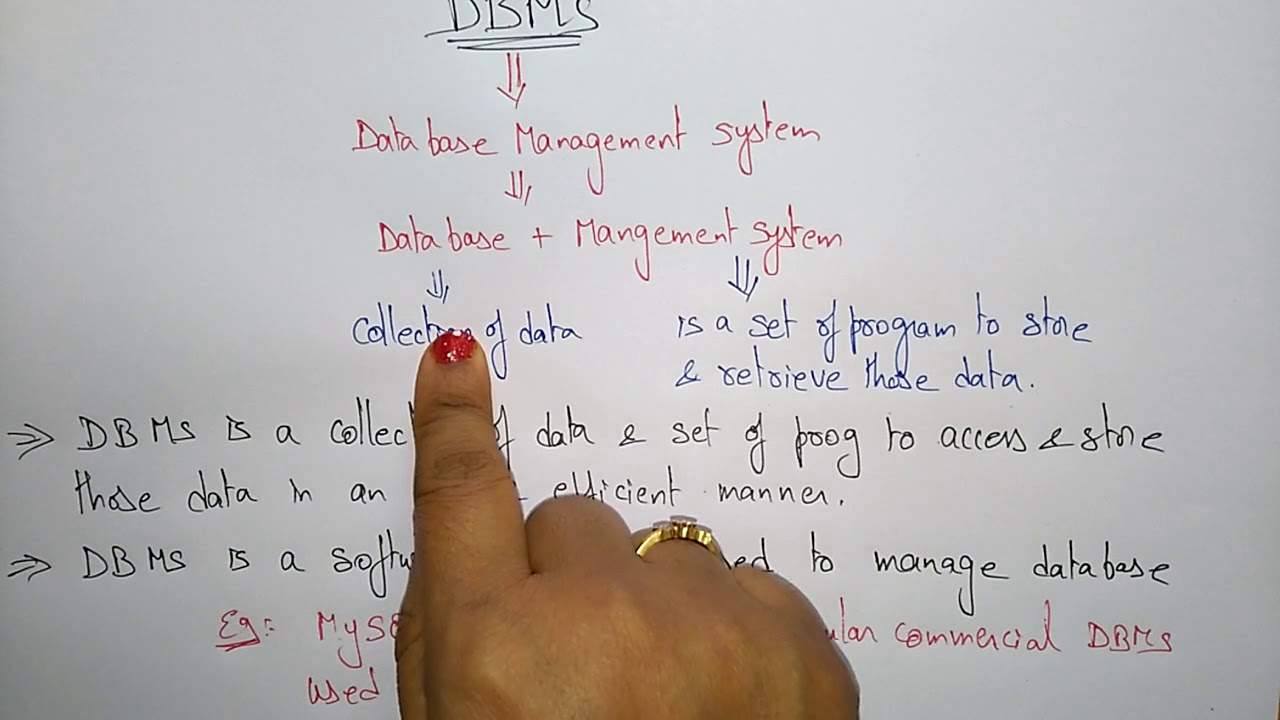 DBMS
Database Management system
Database + Mangement system
collection of data is a set of program to store
& retrieve those data.
⇒ DBMS is a collec of data & set of prog to access & store
those data in an efficient manner.
⇒ DBMS is a softw ed to manage database
Eg: MySQ ular commercial DBMS
used